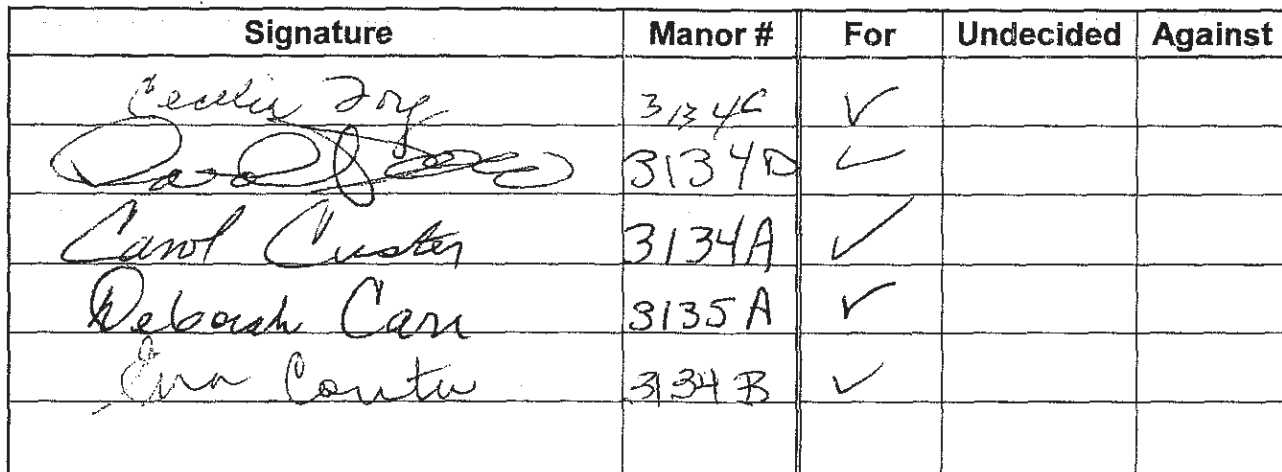 Signature Manor # For Undecided Against
3134C ✓
3134D ✓
Carol Custer 3134A ✓
Deborah Carr 3135A ✓
3134B ✓